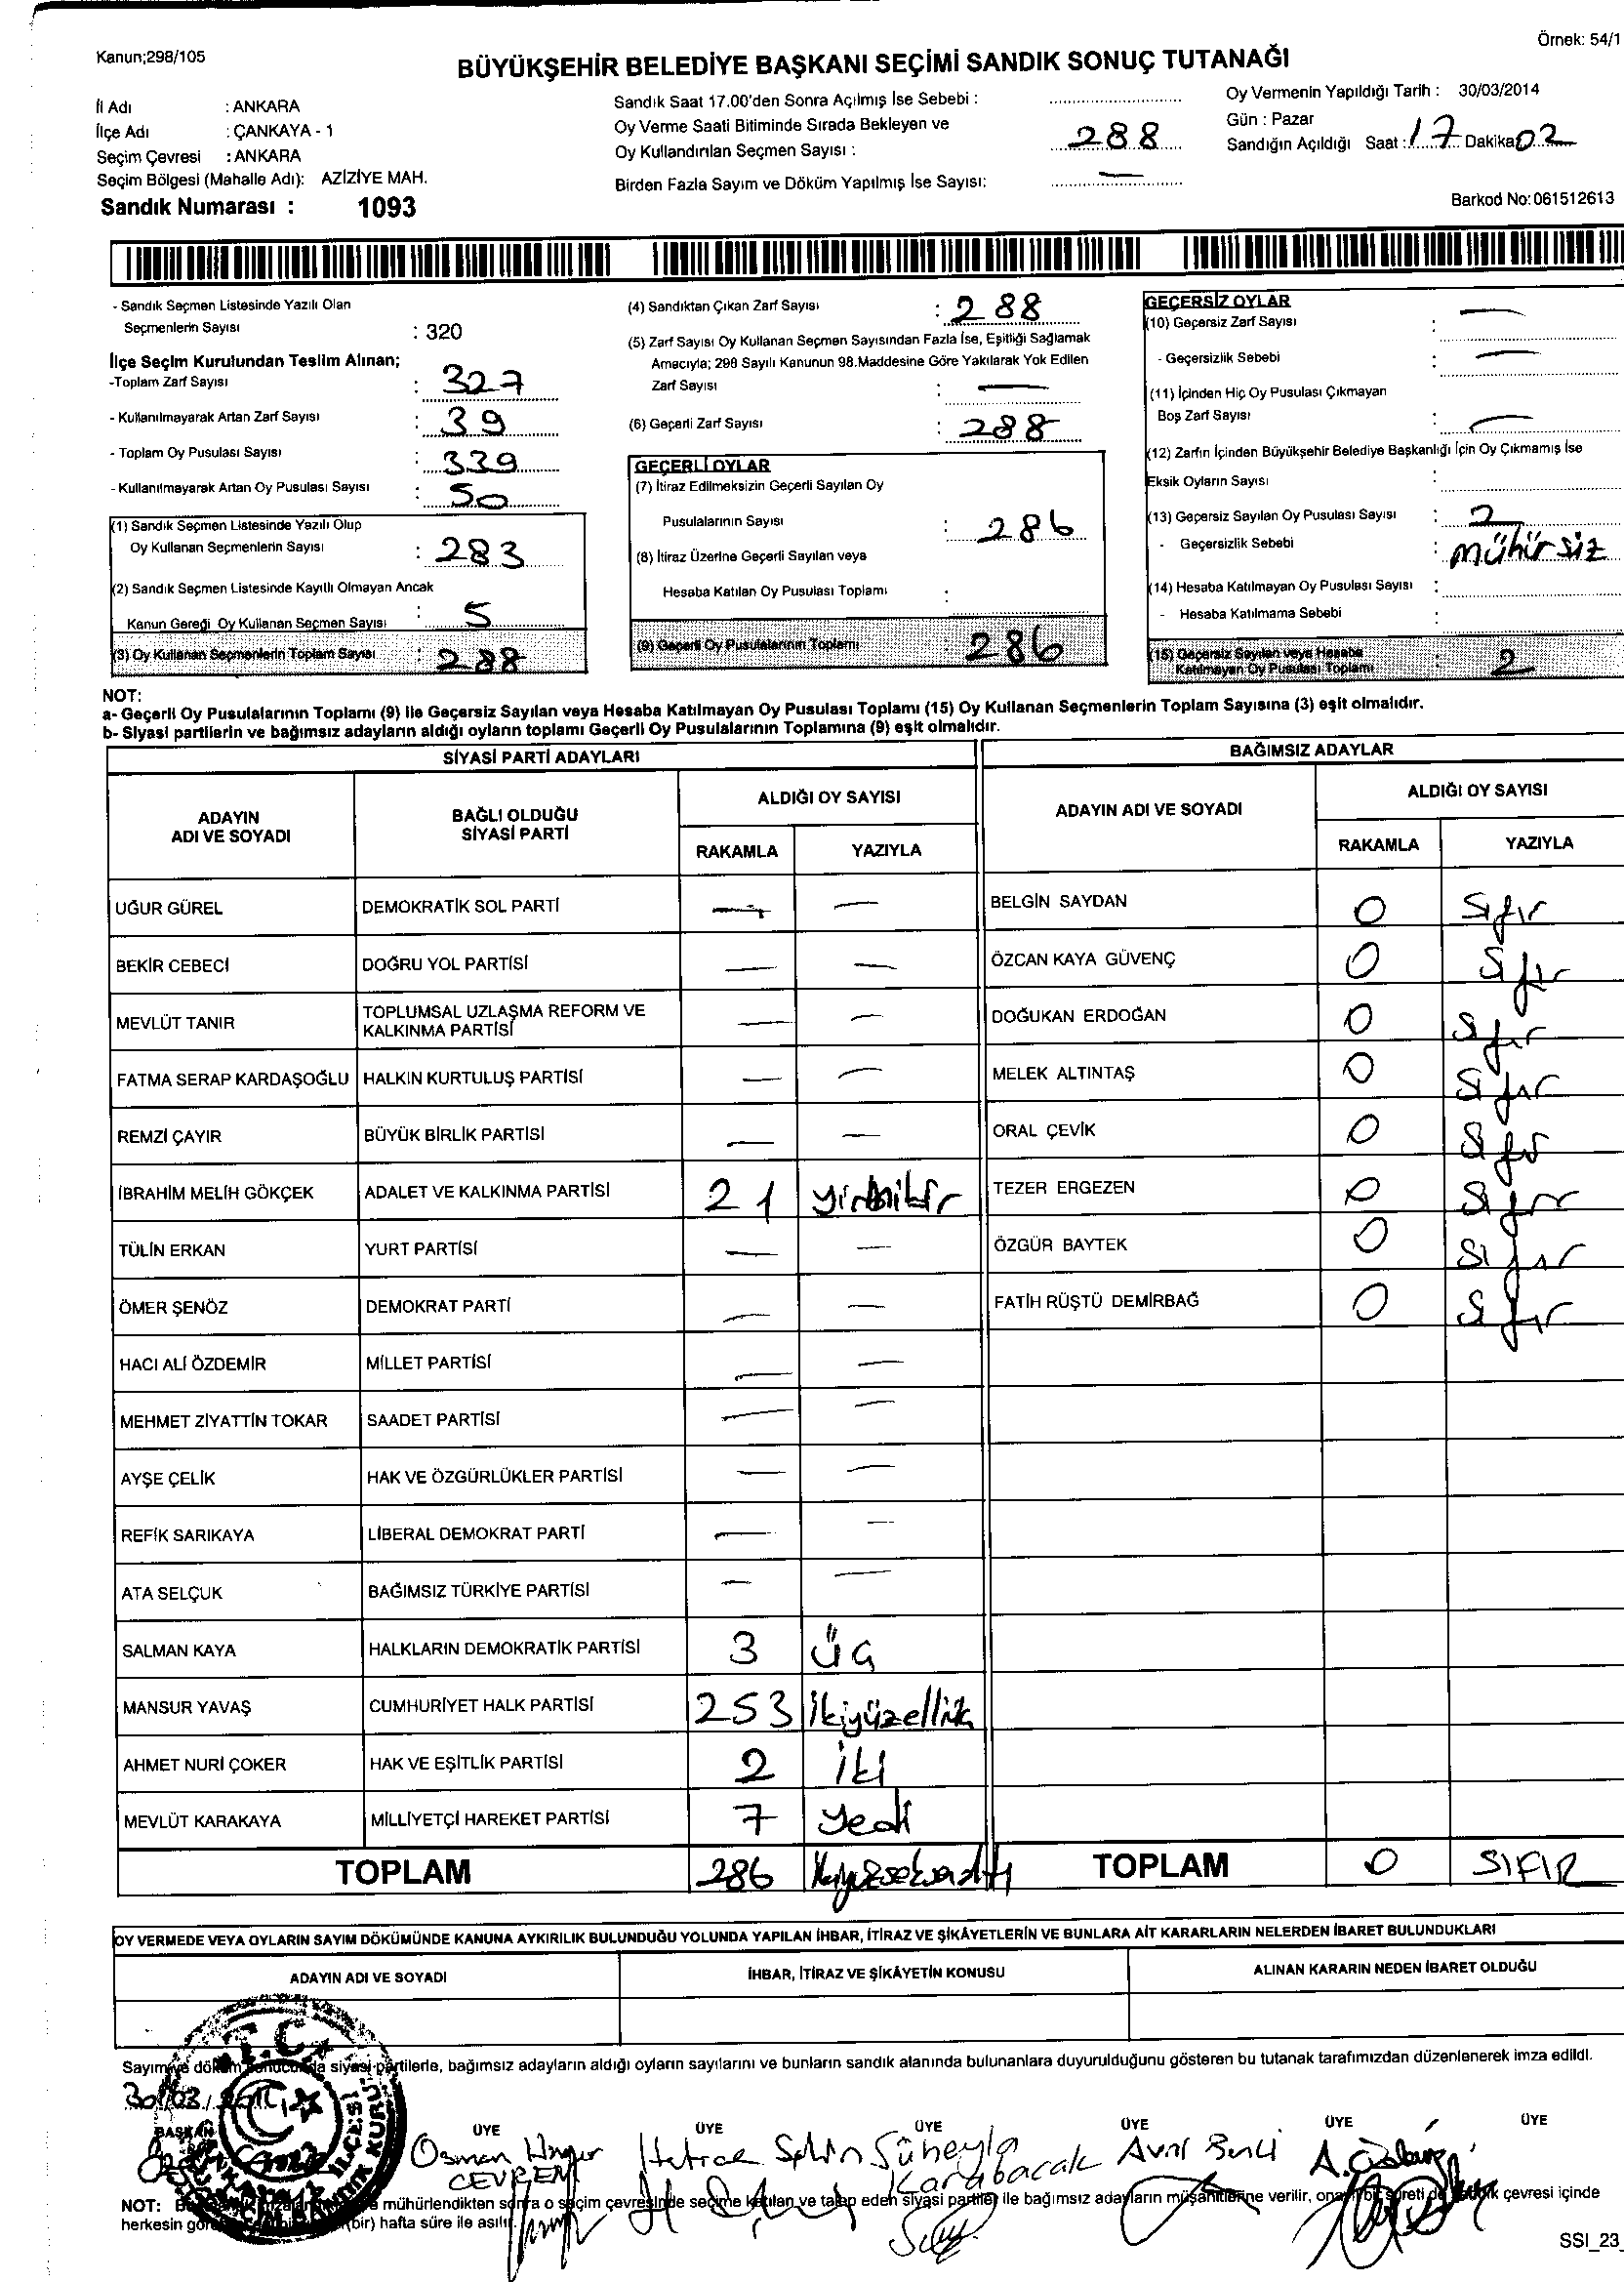 Kanun;298/105
Örnek: 54/1
BÜYÜKŞEHİR BELEDİYE BAŞKANI SEÇİMİ SANDIK SONUÇ TUTANAĞI
İl Adı : ANKARA
İlçe Adı : ÇANKAYA - 1
Seçim Çevresi : ANKARA
Seçim Bölgesi (Mahalle Adı): AZİZİYE MAH.
Sandık Numarası : 1093
Sandık Saat 17.00'den Sonra Açılmış İse Sebebi :
Oy Verme Saati Bitiminde Sırada Bekleyen ve
Oy Kullandırılan Seçmen Sayısı : 288
Birden Fazla Sayım ve Döküm Yapılmış İse Sayısı: —
Oy Vermenin Yapıldığı Tarih : 30/03/2014
Gün : Pazar
Sandığın Açıldığı Saat : 17 Dakika 02
Barkod No: 061512613
- Sandık Seçmen Listesinde Yazılı Olan
Seçmenlerin Sayısı : 320
İlçe Seçim Kurulundan Teslim Alınan;
-Toplam Zarf Sayısı : 327
- Kullanılmayarak Artan Zarf Sayısı : 39
- Toplam Oy Pusulası Sayısı : 339
- Kullanılmayarak Artan Oy Pusulası Sayısı : 50
(1) Sandık Seçmen Listesinde Yazılı Olup
Oy Kullanan Seçmenlerin Sayısı : 283
(2) Sandık Seçmen Listesinde Kayıtlı Olmayan Ancak
Kanun Gereği Oy Kullanan Seçmen Sayısı : 5
(3) Oy Kullanan Seçmenlerin Toplam Sayısı : 288
(4) Sandıktan Çıkan Zarf Sayısı : 288
(5) Zarf Sayısı Oy Kullanan Seçmen Sayısından Fazla İse, Eşitliği Sağlamak
Amacıyla; 298 Sayılı Kanunun 98.Maddesine Göre Yakılarak Yok Edilen
Zarf Sayısı : —
(6) Geçerli Zarf Sayısı : 288
GEÇERLİ OYLAR
(7) İtiraz Edilmeksizin Geçerli Sayılan Oy
Pusulalarının Sayısı : 286
(8) İtiraz Üzerine Geçerli Sayılan veya
Hesaba Katılan Oy Pusulası Toplamı :
(9) Geçerli Oy Pusulalarının Toplamı : 286
GEÇERSİZ OYLAR
(10) Geçersiz Zarf Sayısı : —
- Geçersizlik Sebebi : —
(11) İçinden Hiç Oy Pusulası Çıkmayan
Boş Zarf Sayısı : —
(12) Zarfın İçinden Büyükşehir Belediye Başkanlığı İçin Oy Çıkmamış İse
Eksik Oyların Sayısı :
(13) Geçersiz Sayılan Oy Pusulası Sayısı : 2
- Geçersizlik Sebebi : mühürsüz
(14) Hesaba Katılmayan Oy Pusulası Sayısı :
- Hesaba Katılmama Sebebi :
(15) Geçersiz Sayılan veya Hesaba
Katılmayan Oy Pusulası Toplamı : 2
NOT:
a- Geçerli Oy Pusulalarının Toplamı (9) ile Geçersiz Sayılan veya Hesaba Katılmayan Oy Pusulası Toplamı (15) Oy Kullanan Seçmenlerin Toplam Sayısına (3) eşit olmalıdır.
b- Siyasi partilerin ve bağımsız adayların aldığı oyların toplamı Geçerli Oy Pusulalarının Toplamına (9) eşit olmalıdır.
SİYASİ PARTİ ADAYLARI
BAĞIMSIZ ADAYLAR
ADAYIN ADI VE SOYADI
BAĞLI OLDUĞU SİYASİ PARTİ
ALDIĞI OY SAYISI
RAKAMLA YAZIYLA
ADAYIN ADI VE SOYADI
ALDIĞI OY SAYISI
RAKAMLA YAZIYLA
UĞUR GÜREL DEMOKRATİK SOL PARTİ — — BELGİN SAYDAN 0 Sıfır
BEKİR CEBECİ DOĞRU YOL PARTİSİ — — ÖZCAN KAYA GÜVENÇ 0 Sıfır
MEVLÜT TANIR TOPLUMSAL UZLAŞMA REFORM VE KALKINMA PARTİSİ — — DOĞUKAN ERDOĞAN 0 Sıfır
FATMA SERAP KARDAŞOĞLU HALKIN KURTULUŞ PARTİSİ — — MELEK ALTINTAŞ 0 Sıfır
REMZİ ÇAYIR BÜYÜK BİRLİK PARTİSİ — — ORAL ÇEVİK 0 Sıfır
İBRAHİM MELİH GÖKÇEK ADALET VE KALKINMA PARTİSİ 21 yirmibir TEZER ERGEZEN 0 Sıfır
TÜLİN ERKAN YURT PARTİSİ — — ÖZGÜR BAYTEK 0 Sıfır
ÖMER ŞENÖZ DEMOKRAT PARTİ — — FATİH RÜŞTÜ DEMİRBAĞ 0 Sıfır
HACI ALİ ÖZDEMİR MİLLET PARTİSİ — —
MEHMET ZİYATTİN TOKAR SAADET PARTİSİ — —
AYŞE ÇELİK HAK VE ÖZGÜRLÜKLER PARTİSİ — —
REFİK SARIKAYA LİBERAL DEMOKRAT PARTİ — —
ATA SELÇUK BAĞIMSIZ TÜRKİYE PARTİSİ — —
SALMAN KAYA HALKLARIN DEMOKRATİK PARTİSİ 3 üç
MANSUR YAVAŞ CUMHURİYET HALK PARTİSİ 253
AHMET NURİ ÇOKER HAK VE EŞİTLİK PARTİSİ 2 iki
MEVLÜT KARAKAYA MİLLİYETÇİ HAREKET PARTİSİ 7 yedi
TOPLAM 286 TOPLAM 0 SIFIR
OY VERMEDE VEYA OYLARIN SAYIM DÖKÜMÜNDE KANUNA AYKIRILIK BULUNDUĞU YOLUNDA YAPILAN İHBAR, İTİRAZ VE ŞİKÂYETLERİN VE BUNLARA AİT KARARLARIN NELERDEN İBARET BULUNDUKLARI
ADAYIN ADI VE SOYADI İHBAR, İTİRAZ VE ŞİKÂYETİN KONUSU ALINAN KARARIN NEDEN İBARET OLDUĞU
Sayım ve döküm sonucunda siyasi partilerle, bağımsız adayların aldığı oyların sayılarını ve bunların sandık alanında bulunanlara duyurulduğunu gösteren bu tutanak tarafımızdan düzenlenerek imza edildi.
BAŞKAN ÜYE ÜYE ÜYE ÜYE ÜYE ÜYE
Osman CEVREM
Süheyla Karabacak
T.C.
mühürlendikten sonra o seçim çevresinde seçime katılan ve talep eden siyasi partiler ile bağımsız adayların müşahitlerine verilir, onaylı bir sureti de sandık çevresi içinde
herkesin (bir) hafta süre ile asılır.
SSI_23_